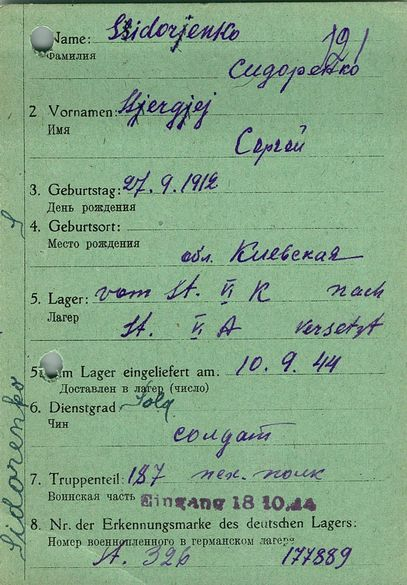 Name: Ssidorjenko 121
Фамилия
Сидоренко
2 Vornamen: Ssjergjej
Имя
Сергей
3. Geburtstag: 27.9.1912
День рождения
4. Geburtsort:
Место рождения
обл. Киевская
5. Lager: vom St. VI K nach
Лагер
St. VI A versetzt
5. Im Lager eingeliefert am: 10.9.44
Доставлен в лагер (число)
6. Dienstgrad Sold
Чин
солдат
7. Truppenteil: 187 пех. полк
Воинская часть Eingang 18 10.44
8. Nr. der Erkennungsmarke des deutschen Lagers:
Номер военнопленного в германском лагере
St. 326 177889
Sidorenko S